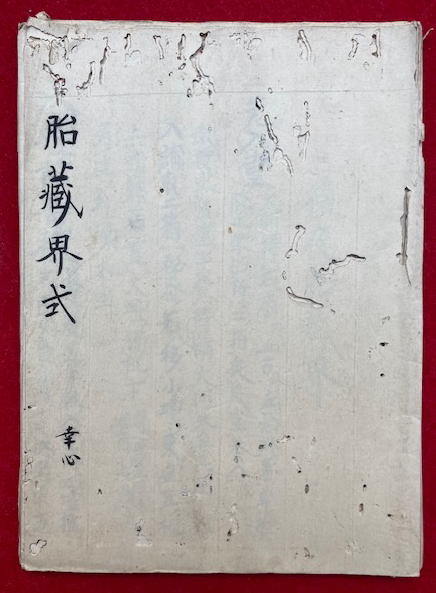 胎藏界式
幸心